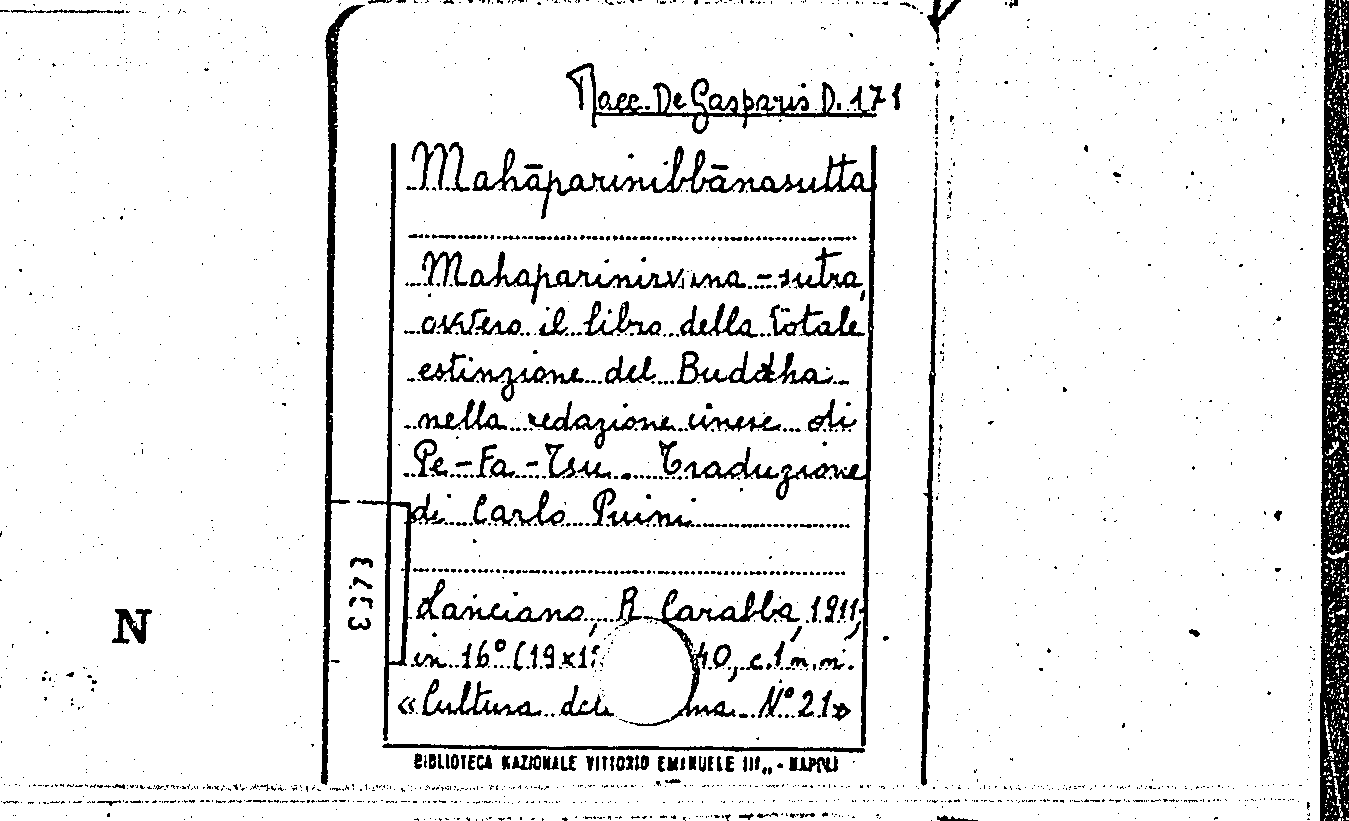 Racc. De Gasparis D. 171
Mahāparinibbānasutta
Mahaparinirvana - sutra,
ovvero il libro della totale
estinzione del Buddha
nella redazione cinese di
Pe - Fa - Tsu. Traduzione
di Carlo Puini
Lanciano, R Carabba, 1911,
in 16° (19x1 40, c.1 n.n.
«Cultura del ma N° 21»
BIBLIOTECA NAZIONALE VITTORIO EMANUELE III„ - NAPOLI
N